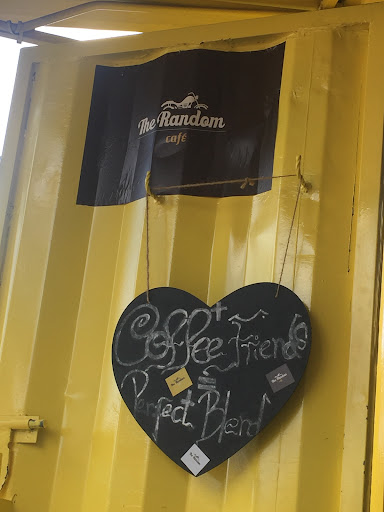 The Random
café
+
Coffee Friends
=
Perfect Blend